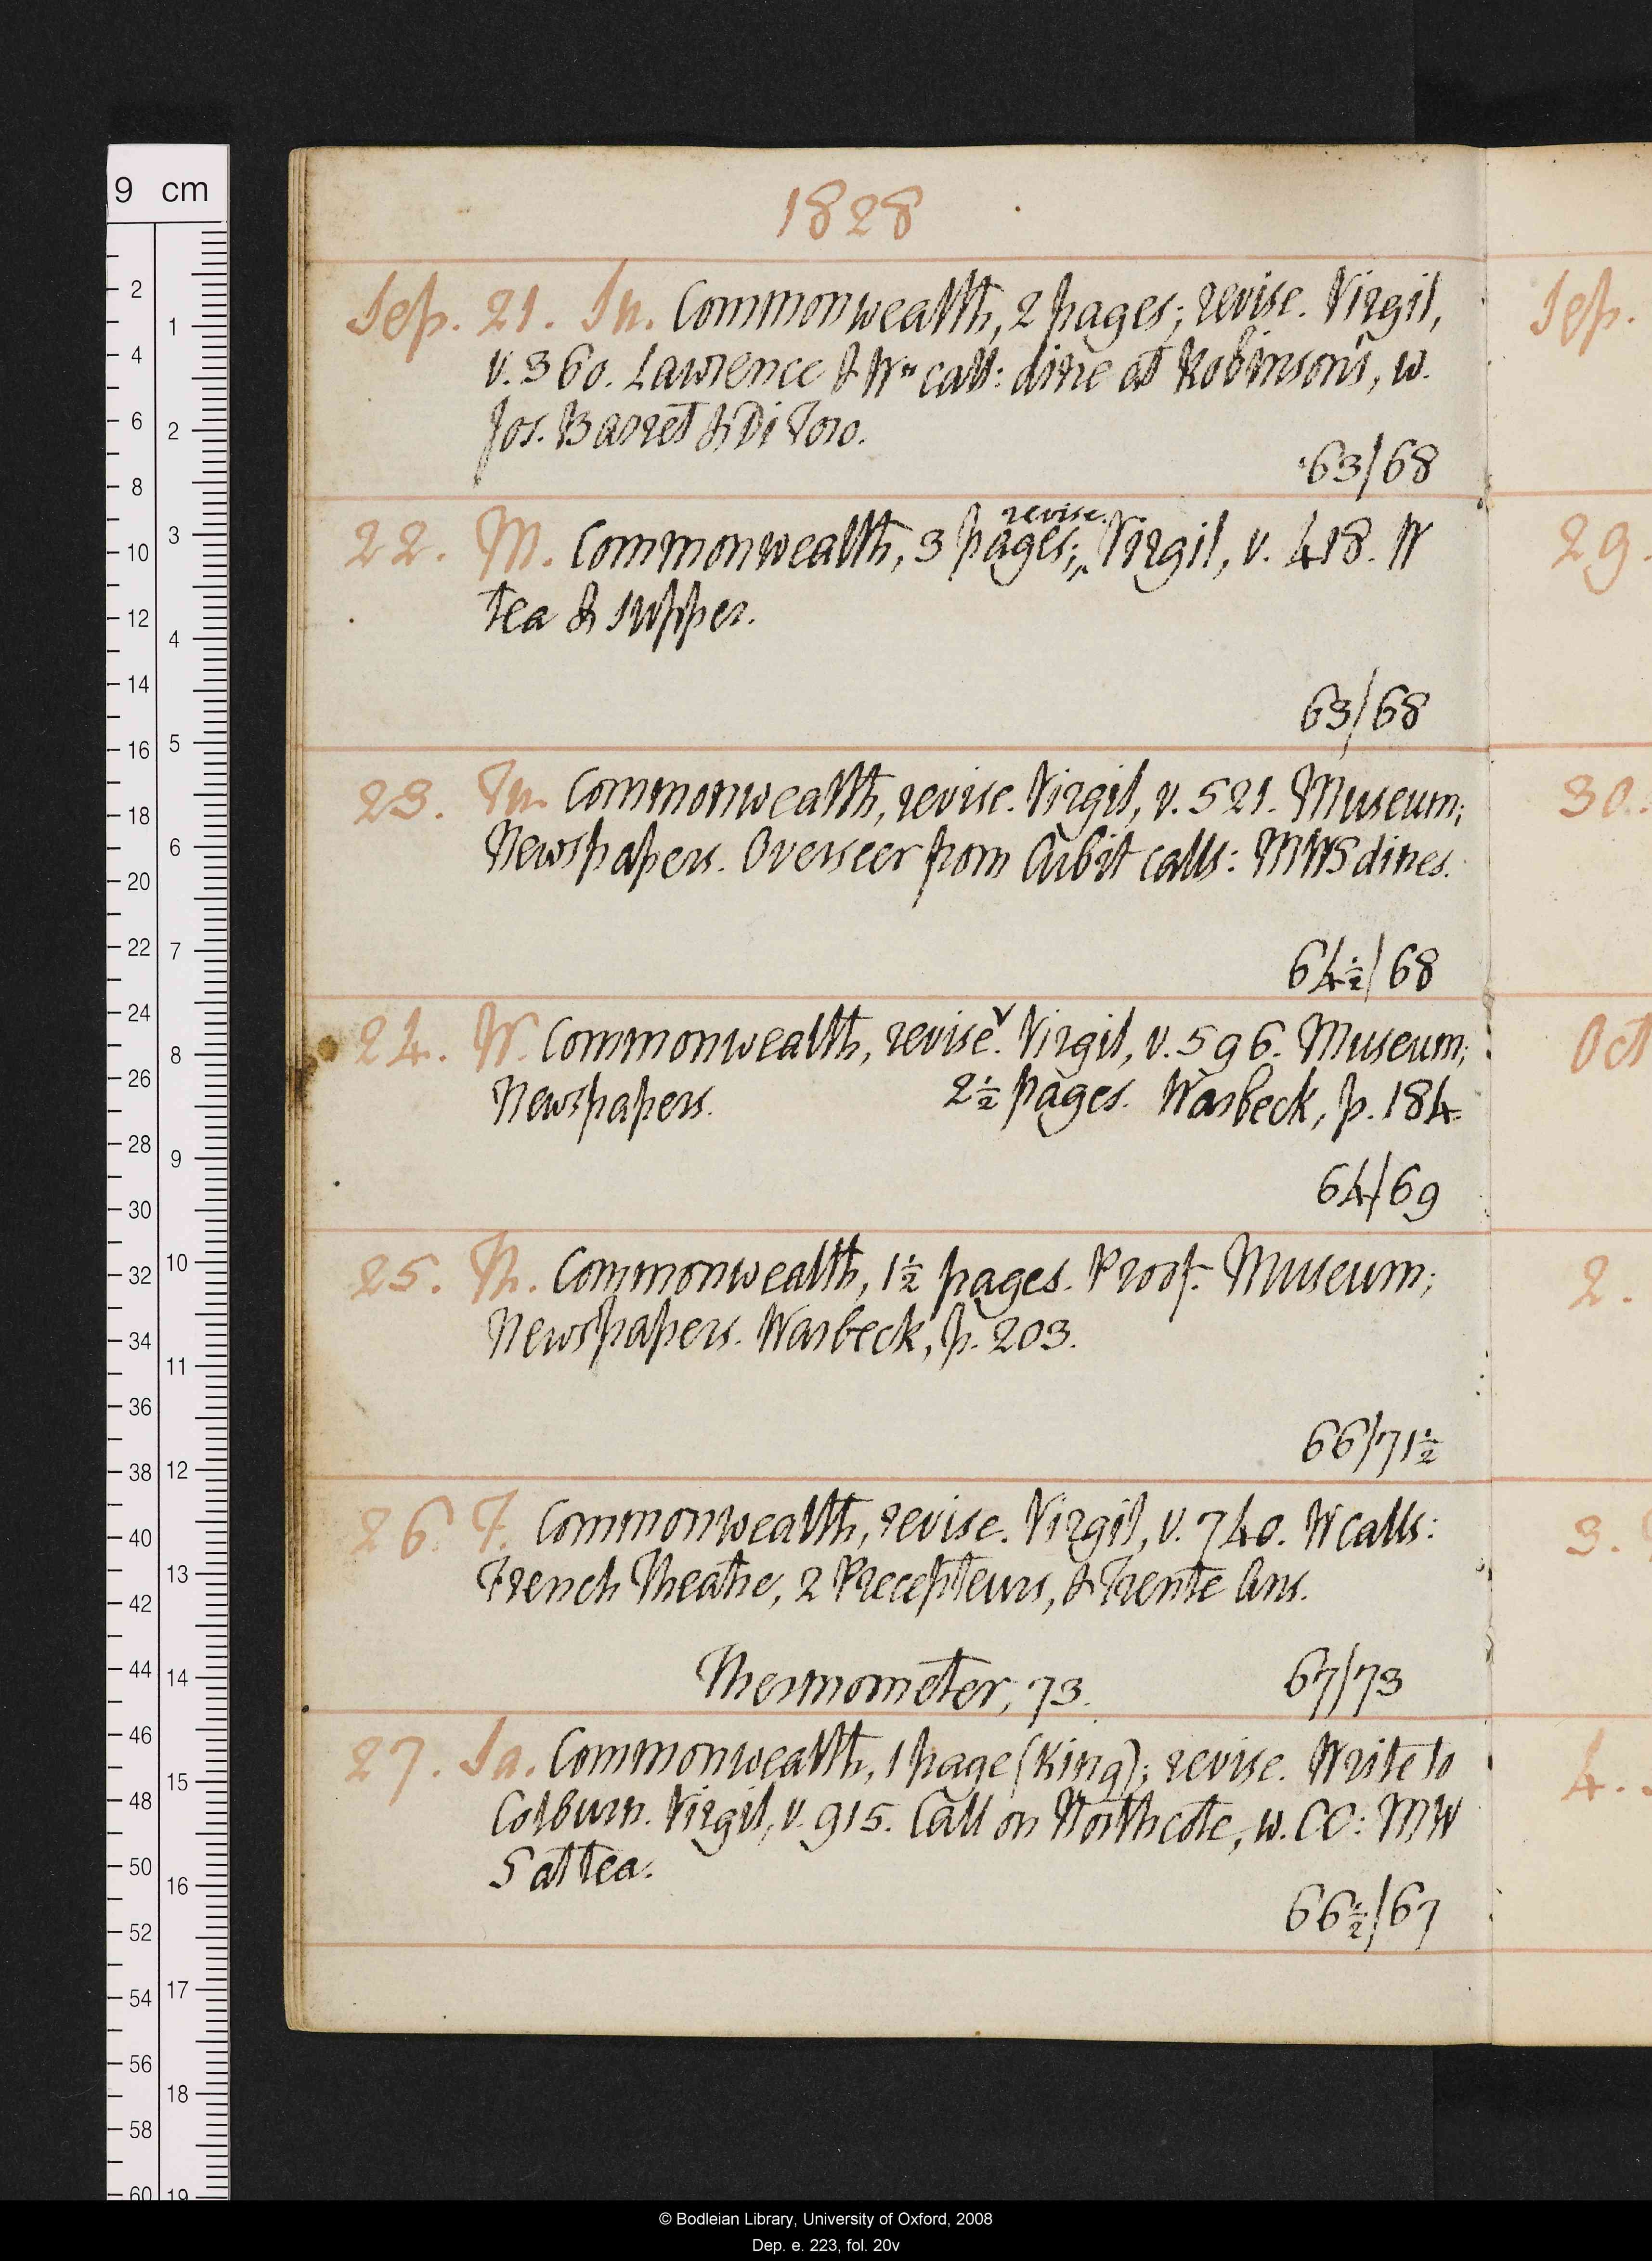 1828
Sep. 21. Su. Commonwealth, 2 pages; revise. Virgil,
v. 360. Lawrence & Wm call: dine at Robinson's, w.
Jos. Barret & Di Toro.
63/68
22. M. Commonwealth, 3 pages; revise. Virgil, v. 418. W
tea & supper.
63/68
23. Tu. Commonwealth, revise. Virgil, v. 521. Museum;
Newspapers. Overseer from calls: MWS dines.
64½/68
24. W. Commonwealth, revise. Virgil, v. 596. Museum;
Newspapers. 2½ pages. Warbeck, p. 184.
64/69
25. Th. Commonwealth, 1½ pages. Proof. Museum;
Newspapers. Warbeck, p. 203.
66/71½
26. F. Commonwealth, revise. Virgil, v. 740. W calls:
French Theatre, 2 Precepteurs, & Trente Ans.
Thermometer, 73. 67/73
27. Sa. Commonwealth, 1 page (King); revise. Write to
Colburn. Virgil, v. 915. Call on Northcote, w. CC: MW
S at tea.
66½/67
Sep.
29.
30.
Oct
2.
3.
4.
9 cm
2 4 6 8 10 12 14 16 18 20 22 24 26 28 30 32 34 36 38 40 42 44 46 48 50 52 54 56 58 60
1 2 3 4 5 6 7 8 9 10 11 12 13 14 15 16 17 18 19
© Bodleian Library, University of Oxford, 2008
Dep. e. 223, fol. 20v